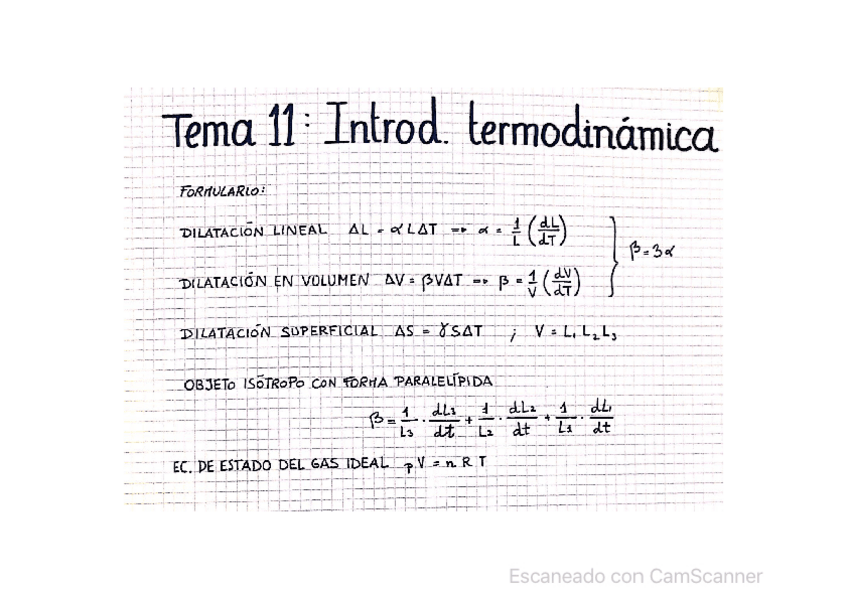 Tema 11: Introd. termodinámica
FORMULARIO:
DILATACIÓN LINEAL ΔL = αLΔT → α = 1/L (dL/dT)
β = 3α
DILATACIÓN EN VOLUMEN ΔV = βVΔT → β = 1/V (dV/dT)
DILATACIÓN SUPERFICIAL ΔS = γSΔT ; V = L₁ L₂ L₃
OBJETO ISÓTROPO CON FORMA PARALELÍPIDA
β = 1/L₃ · dL₃/dt + 1/L₂ · dL₂/dt + 1/L₁ · dL₁/dt
EC. DE ESTADO DEL GAS IDEAL pV = nRT
Escaneado con CamScanner